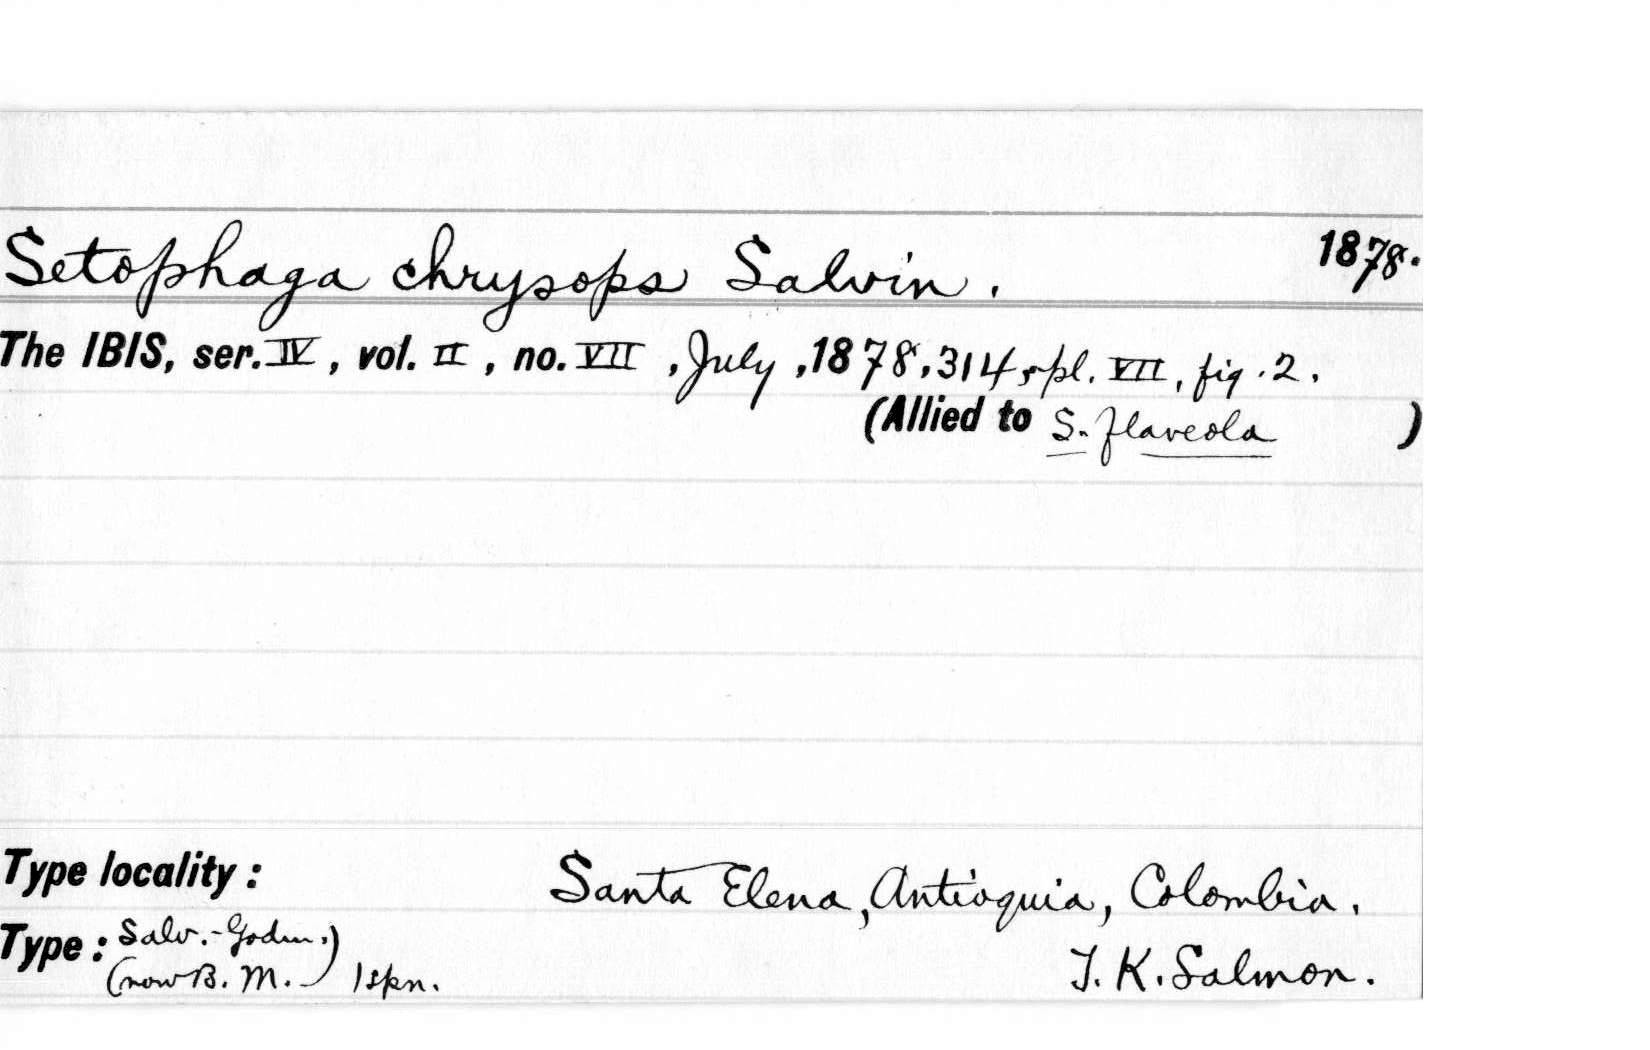 Setophaga chrysops Salvin. 1878.
The IBIS, ser. IV, vol. II, no. VII, July, 1878, 314, pl. VII, fig. 2.
(Allied to S. flaveola )
Type locality: Santa Elena, Antioquia, Colombia.
Type: Salv.-Godm.)
(now B. M.) 1 spn. T. K. Salmon.